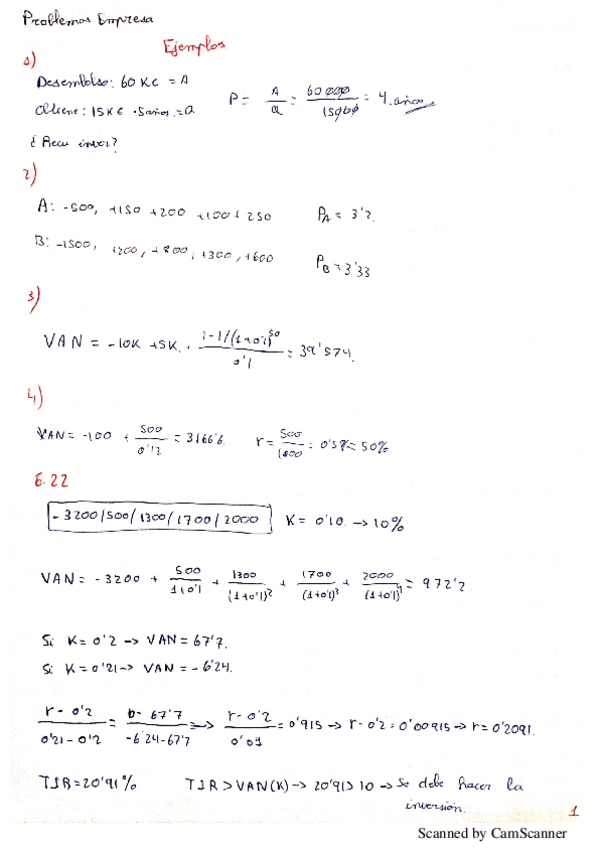 Problemas Empresa
Ejemplos
1)
Desembolso: 60 K€ = A
Obtiene: 15K€ · 5 años = Q
P = A/Q = 60000/15000 = 4 años
¿Recu inver?
2)
A: -500, +150 +200 +100 + 250
P_A = 3'2.
B: -1500, +200, +800, +300, +600
P_B = 3'33
3)
VAN = -10K +5K · (1-1/(1+0'1)^50)/0'1 = 39'574.
4)
VAN = -100 + 500/0'12 = 3166'6 r = 500/1000 = 0'5 = 50%
6.22
-3200/500/1300/1700/2000 K = 0'10 → 10%
VAN = -3200 + 500/1+0'1 + 1300/(1+0'1)^2 + 1700/(1+0'1)^3 + 2000/(1+0'1)^4 = 972'2
Si K = 0'2 → VAN = 67'7.
Si K = 0'21 → VAN = -6'24.
(r - 0'2)/(0'21 - 0'2) = (0 - 67'7)/(-6'24 - 67'7) ⇒ (r - 0'2)/0'01 = 0'915 → r - 0'2 = 0'00915 → r = 0'2091.
TIR = 20'91% TIR > VAN(K) → 20'91 > 10 → Se debe hacer la
inversión.
1
Scanned by CamScanner